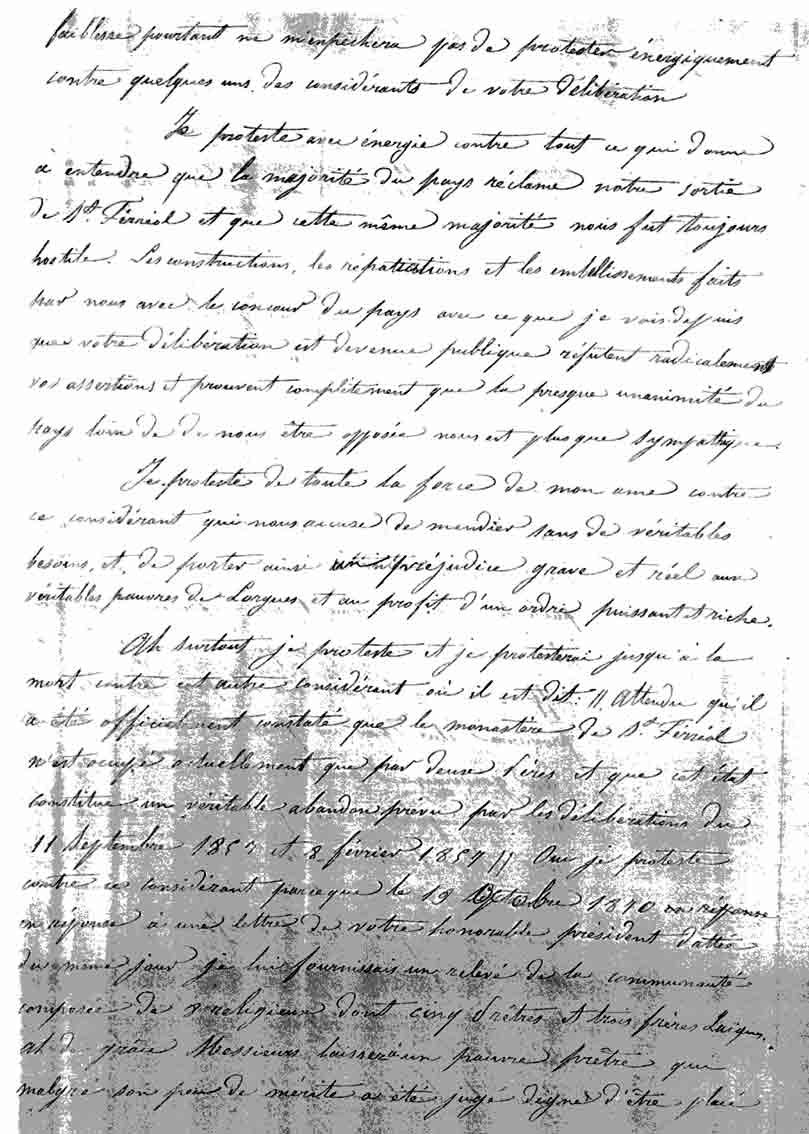 faiblesse pourtant ne m'empechera pas de protester énergiquement
contre quelques uns des considérants de votre délibération
Je proteste avec énergie contre tout ce qui donne
à entendre que la majorité du pays réclame notre sortie
de St. Férréol et que cette même majorité nous fut toujours
hostile. Les constructions, les réparations et les embellissements faits
par nous avec le concour du pays avec ce que je vois depuis
que votre délibération est devenue publique réfutent radicalement
vos assertions et prouvent complètement que la presque unanimité du
pays loin de de nous être opposée nous est plus que sympathique.
Je proteste de toute la force de mon ame contre
ce considérant qui nous accuse de mendier sans de véritables
besoins, et, de porter ainsi préjudice grave et réel aux
véritables pauvres de Lorgues, et au profit d'un ordre puissant et riche.
Ah surtout je proteste et je protesterai jusqu'à la
mort contre cet autre considérant où il est dit: " Attendu qu'il
a été officielment constaté que le monastère de St. Férréol
n'est occupé actuellement que par deux Pères et que cet état
constitue un véritable abandon prévu par les délibérations du
11 Septembre 1857 et 8 février 1857 " Oui je proteste
contre ce considérant parceque le 19 Octobre 1870 en réponse
en réponse à une lettre de votre honorable président dattée
du même jour je lui fournissais un relevé de la communauté
composée de religieux dont cinq Prêtres et trois frères Laïques.
de grâce Messieurs un pauvre prêtre qui
malgré son peu de mérite a été jugé digne d'être placé